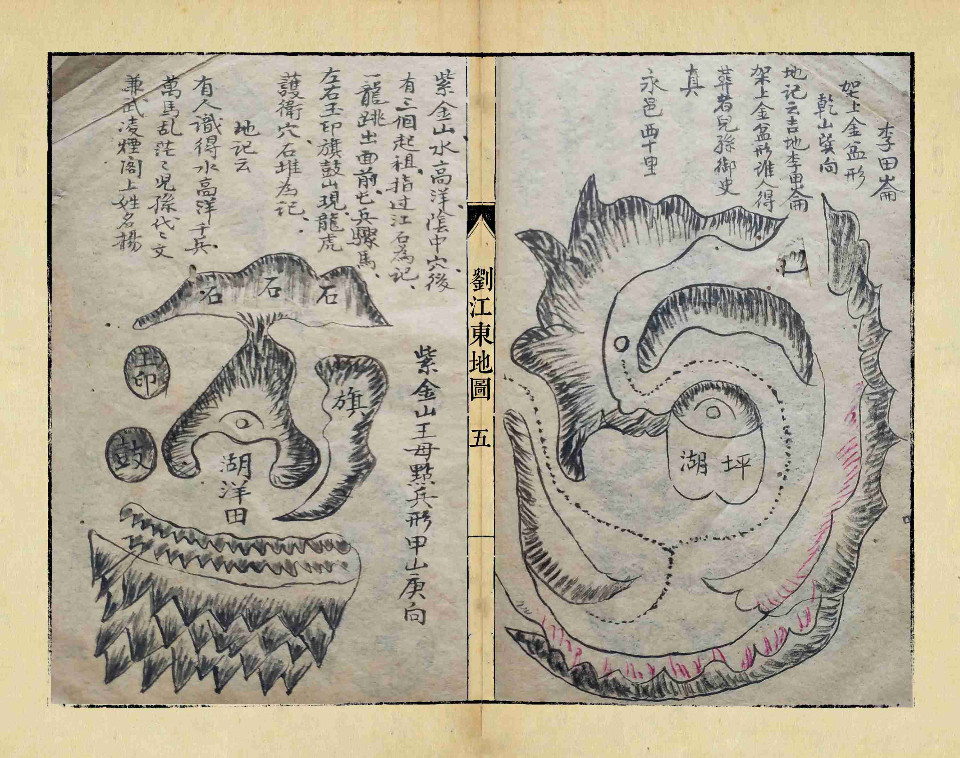 李田崙
架上金盆形
乾山巽向
地記云吉地李田崙
架上金盆形誰人得
葬者兒孫御史
真
永邑西十里
坪湖
劉江東地圖 五
紫金山水高洋陰中穴後
有三個起祖指過江石為記
一龍跳出面前屯兵驟馬
左右玉印旗鼓山現龍虎
護衛穴石堆為記
地記云
有人識得水高洋千兵
萬馬乱茫々兒孫代々文
兼武凌煙閣上姓名揚
石 石 石
玉印
旗
鼓
湖洋田
紫金山王母點兵形甲山庚向